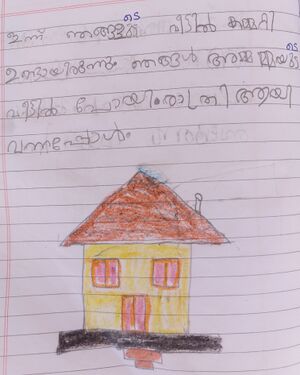 ഇന്ന് ഞങ്ങളുടെ വീട്ടിൽ കമ്മറ്റി
ഉണ്ടായിരുന്നു ഞങ്ങൾ അമ്മമ്മയുടെ
വീട്ടിൽ പോയി രാത്രി ആയി
വന്നപ്പോൾ.